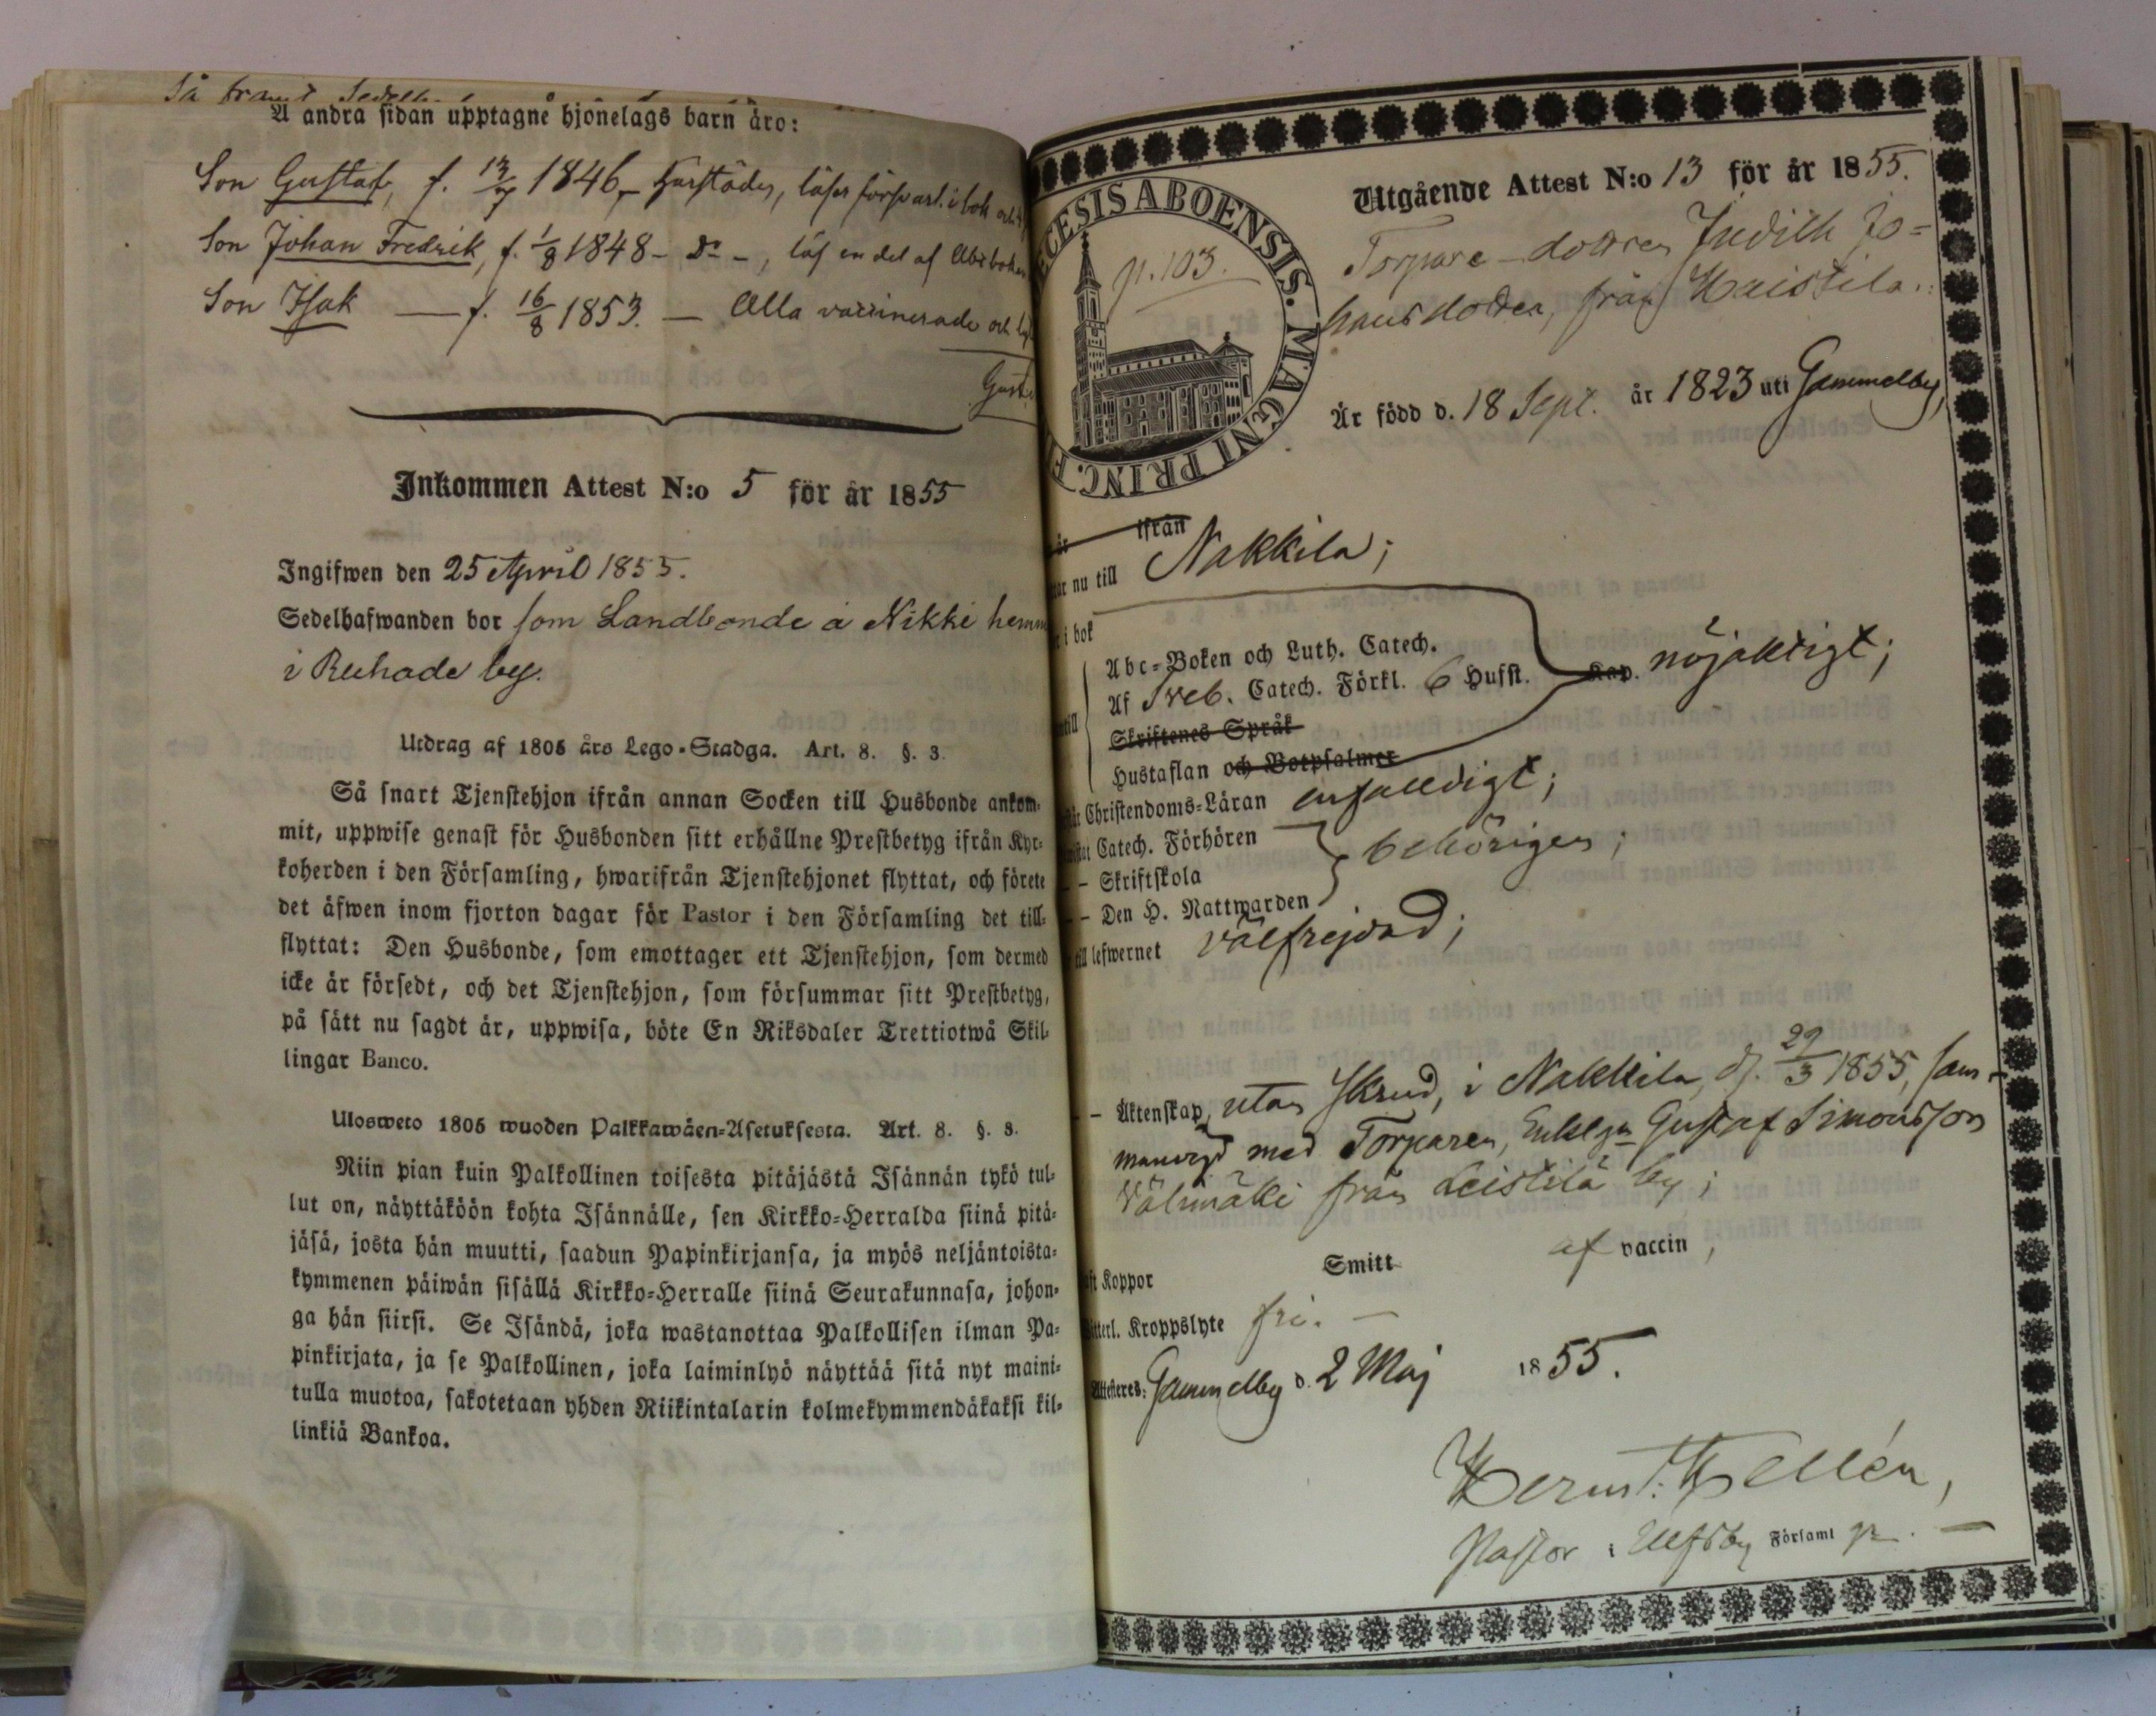 Så framt
Å andra sidan upptagne hjonelags barn äro:
Son Gustaf, f. 13/7 1846, läser först i bok och
Son Johan Fredrik, f. 1/8 1848 - Do -, läs en del af Abcboken
Son Isak — f. 16/8 1853. — Alla vaccinerade och
Gust
Inkommen Attest N:o 5 för år 1855
Ingifwen den 25 April 1855.
Sedelhafwanden bor som Landbonde å Nikki hemm
i Ruhade by.
Utdrag af 1805 års Lego-Stadga. Art. 8. §. 3.
Så snart Tjenstehjon ifrån annan Socken till Husbonde ankom-
mit, uppwise genast för Husbonden sitt erhållne Prestbetyg ifrån Kyr-
koherden i den Församling, hwarifrån Tjenstehjonet flyttat, och förete
det äfwen inom fjorton dagar för Pastor i den Församling det till-
flyttat: Den Husbonde, som emottager ett Tjenstehjon, som dermed
icke är försedt, och det Tjenstehjon, som försummar sitt Prestbetyg,
på sätt nu sagdt är, uppwisa, böte En Riksdaler Trettiotwå Skil-
lingar Banco.
Ulosweto 1805 wuoden Palkkawäen-Asetuksesta. Art. 8. §. 3.
Niin pian kuin Palkollinen toisesta pitäjästä Isännän tykö tul-
lut on, näyttäköön kohta Isännälle, sen Kirkko-Herralda siinä pitä-
jäsä, josta hän muutti, saadun Papinkirjansa, ja myös neljäntoista-
kymmenen päiwän sisällä Kirkko-Herralle siinä Seurakunnasa, johon-
ga hän siirsi. Se Isändä, joka wastanottaa Palkollisen ilman Pa-
pinkirjata, ja se Palkollinen, joka laiminlyö näyttää sitä nyt maini-
tulla muotoa, sakotetaan yhden Riikintalarin kolmekymmendäkaksi kil-
linkiä Bankoa.
CESIS ABOENSIS. MAGNI PRINC. F
p. 103.
Utgående Attest N:o 13 för år 1855.
Torpare-dottren Judith Jo=
hansdotter, från Haistila.:
Är född d. 18 Sept. år 1823 uti Gammelby,
är ifrån
tar nu till Nakkila;
r i bok
Abc-Boken och Luth. Catech.
Af Sveb. Catech. Förkl. 6 Hufst. Kap. nöjaktigt;
Skriftenes Språk
Hustaflan och Botpsalmer
Christendoms-Läran enfaldigt;
Catech. Förhören
- Skriftskola behörigen;
- - Den H. Nattwarden
till lefwernet välfrejdad;
- - Äktenskap, utan Skrud, i Nakkila, d. 29/3 1855, sam-
manvigd med Torparen, Enkl. Gustaf Simonsson
Välimäki från Leistilä by;
ft Koppor Smitt af vaccin,
tterl. Kroppslyte fri. —
Attesteres: Gammelby d. 2 Maj 1855.
Hellén,
Pastor i Ulfsby Församl